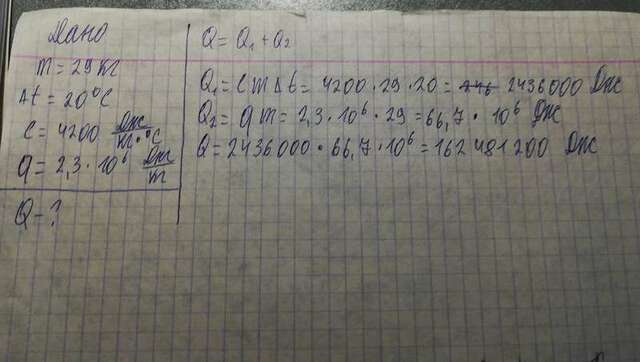 Дано
m = 29 кг
Δt = 20°C
C = 4200 Дж/кг·°C
q = 2,3·10⁶ Дж/m
Q - ?
Q = Q₁ + Q₂
Q₁ = C m Δt = 4200·29·20 = 2436000 Дж
Q₂ = q m = 2,3·10⁶·29 = 66,7·10⁶ Дж
Q = 2436000·66,7·10⁶ = 162481200 Дж